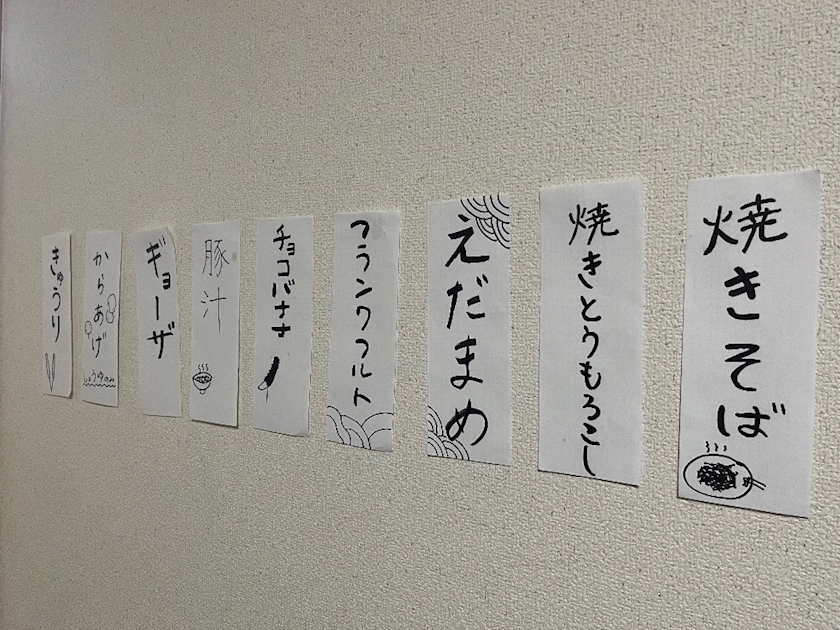 焼きそば
焼きとうもろこし
えだまめ
フランクフルト
チョコバナナ
豚汁
ギョーザ
からあげ
しょうゆのみ
きゅうり